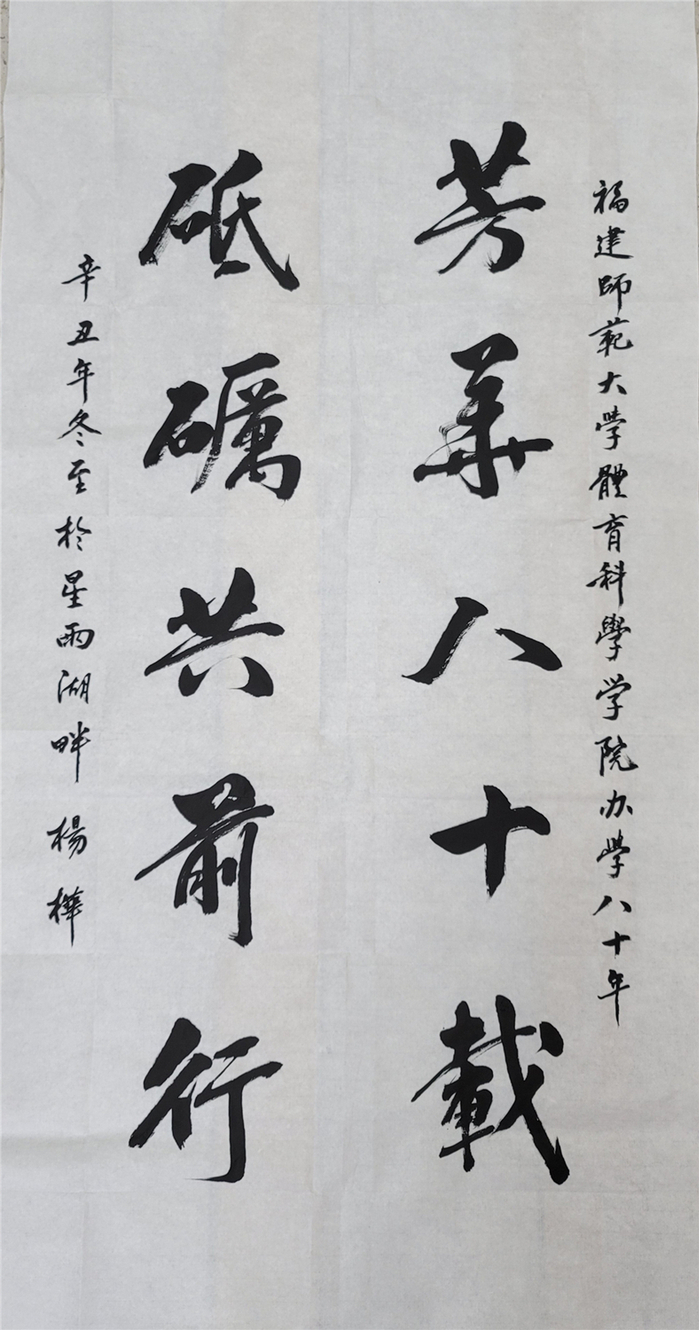 福建師範大学體育科學学院办学八十年
芳華八十載
砥礪共前行
辛丑年冬至於星雨湖畔楊樺